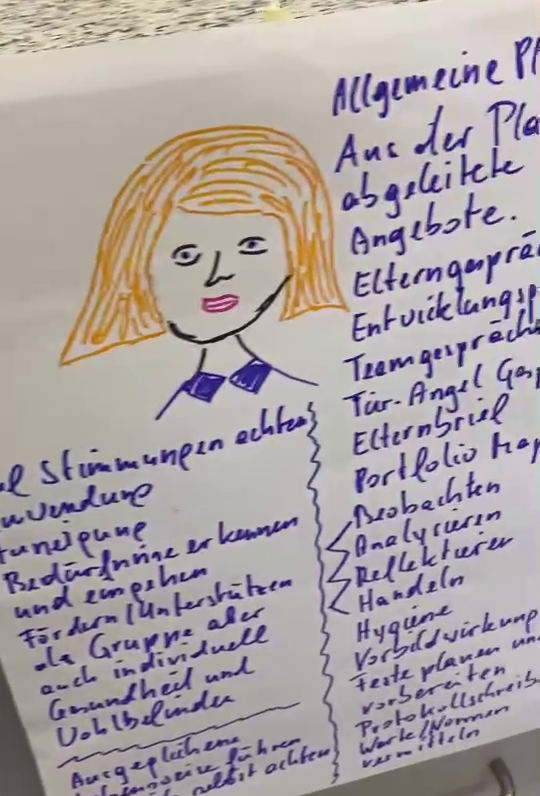 Allgemeine
Aus der
abgeleitete
Angebote.
Elterngesprä
Entwicklungsp
Teamgespräche
Tür-Angel Gesp
Elternbrief
Portfolio Map
Beobachten
Analysieren
Reflektieren
Handeln
Hygiene
Vorbildwirkung
Feste planen und
vorbereiten
Protokollschreib
Werte/Normen
vermitteln
Stimmungen achten
Zuneigung
Bedürfnisse erkennen
und eingehen
Fördern/Unterstützen
als Gruppe aber
auch individuell
Gesundheit und
Wohlbefinden
Ausgeglichene
führen
selbst achten